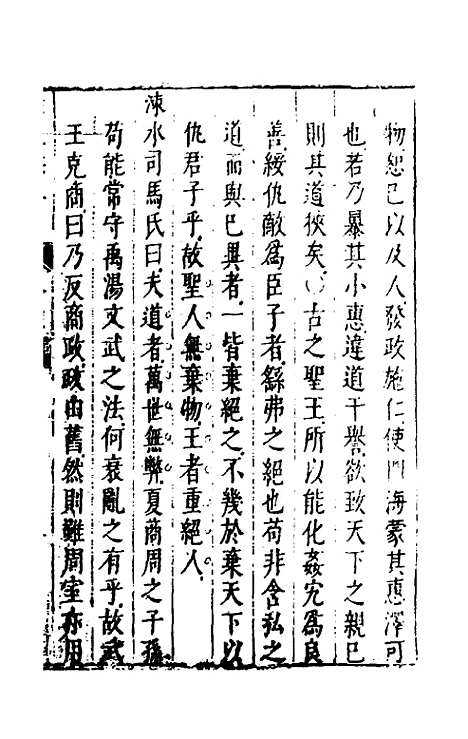 物恕己以及人發政施仁使四海蒙其惠澤可
也若乃暴其小惠違道干譽欲致天下之親己
則其道狹矣○古之聖王所以能化姦宄為良
善綏仇敵為臣子者繇弗之絕也苟非含私之
道而與己異者一皆棄絕之不幾於棄天下以
仇君子乎故聖人無棄物王者重絕人
涑水司馬氏曰夫道者萬世無弊夏商周之子孫
苟能常守禹湯文武之法何衰亂之有乎故武
王克商曰乃反商政政由舊然則雖周室亦用